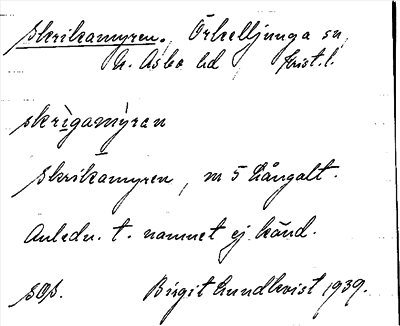 Skrikamyren, Örkelljunga sn,
N. Åsbo hd, Krist. l.
skrìgamỳren
Skrikamyren, m 5 Långalt.
Anledn. t. namnet ej känd.
Birgit Lundkvist 1939.